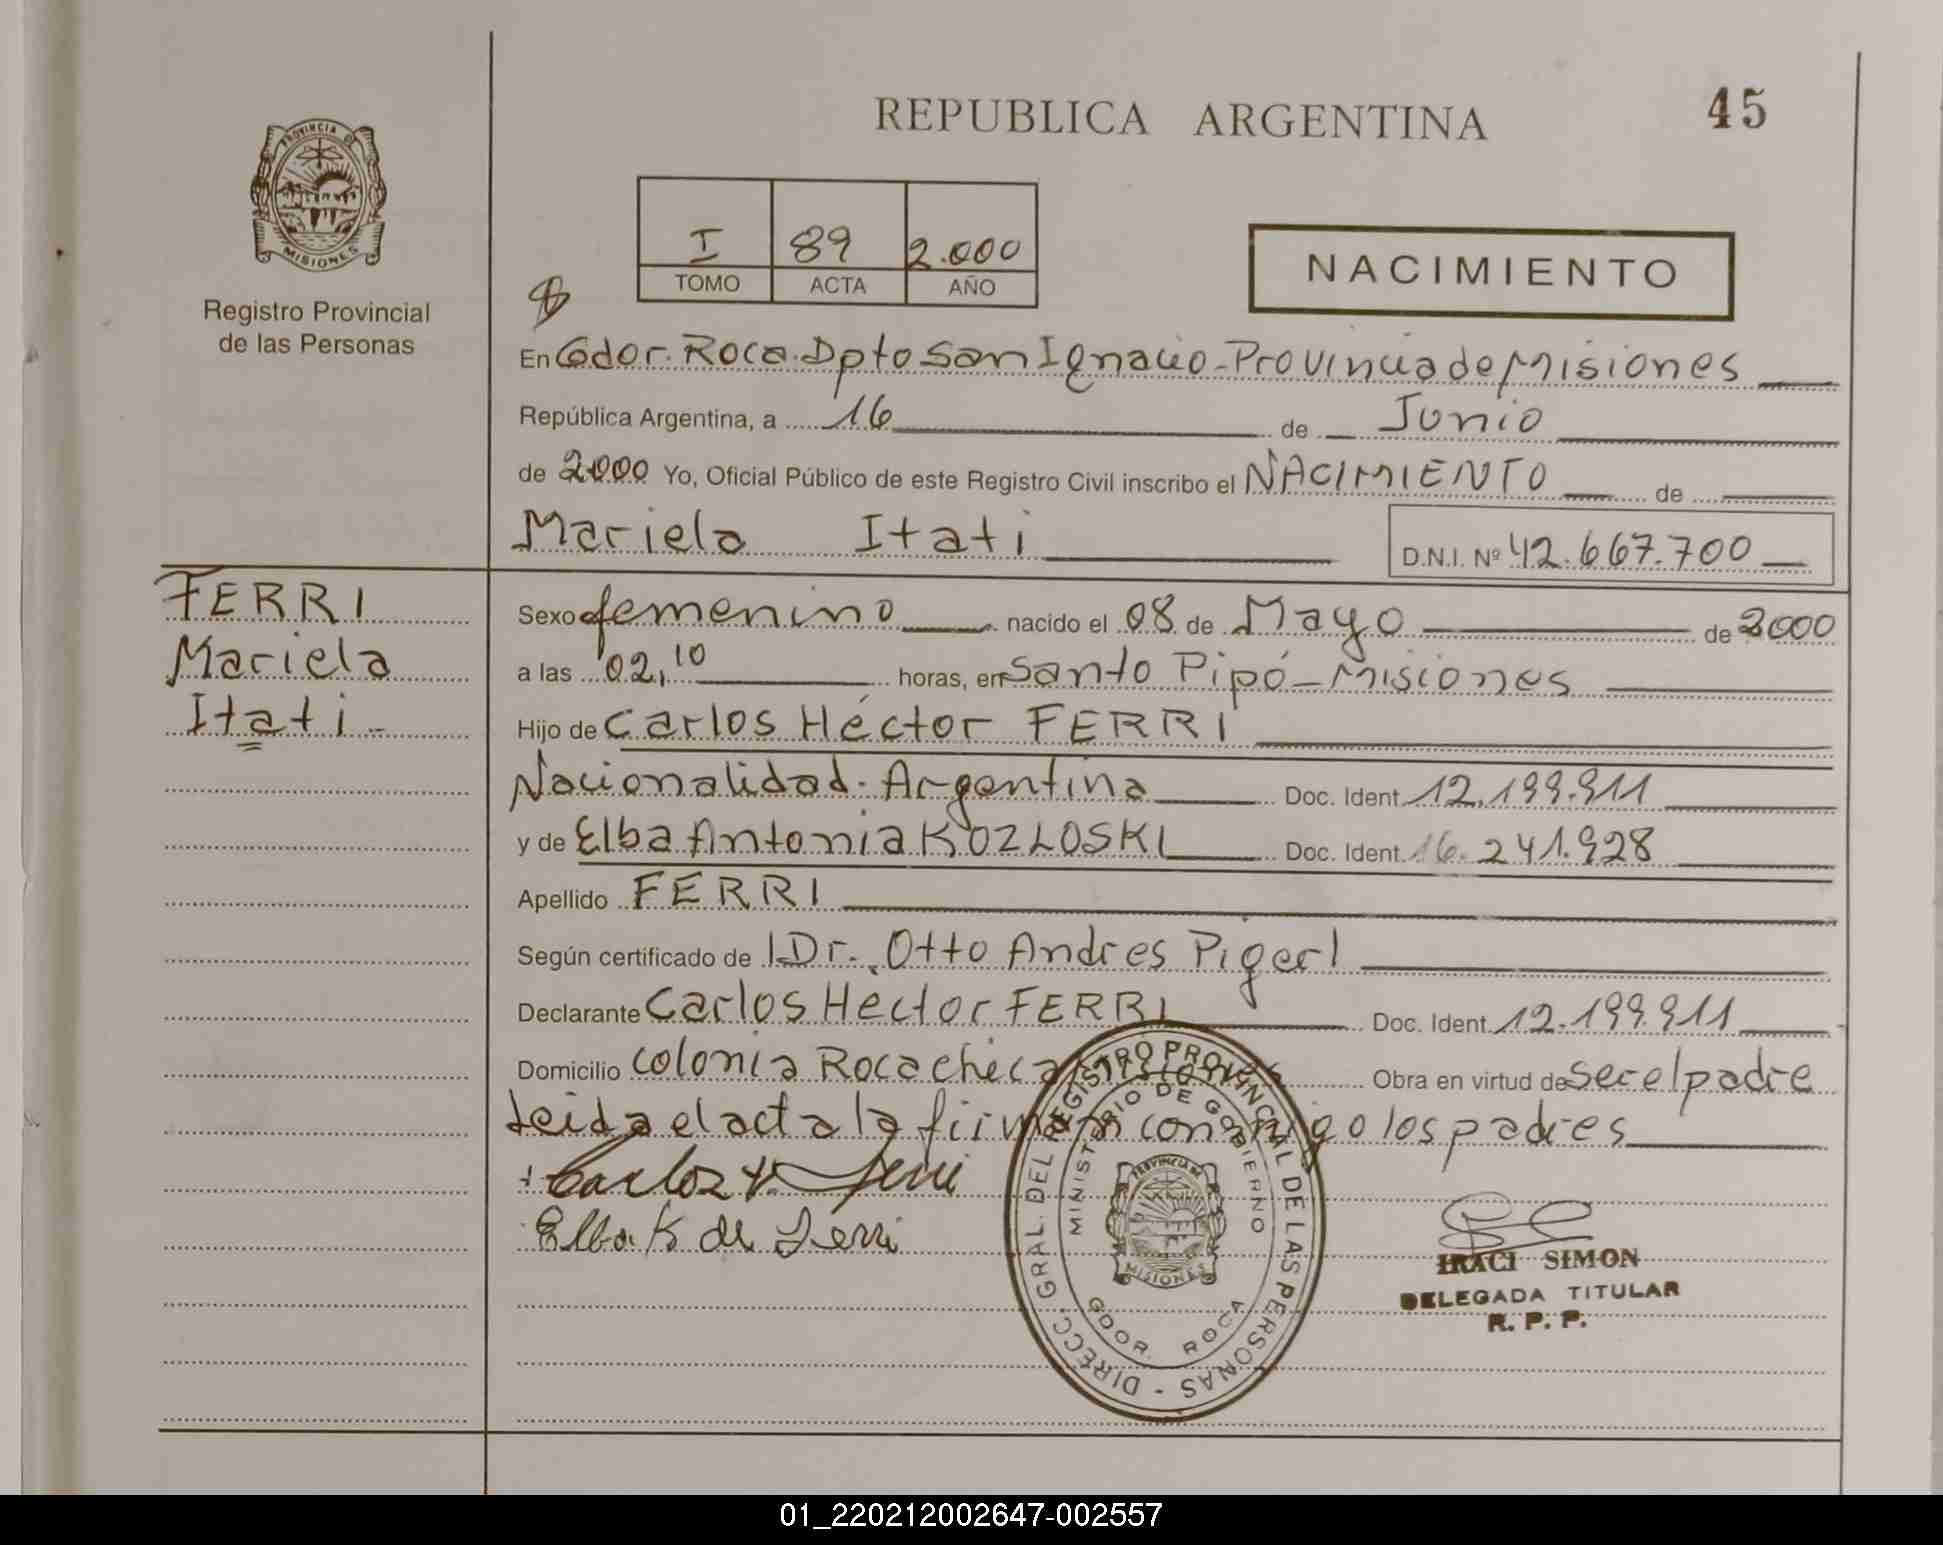 REPUBLICA ARGENTINA
45
PROVINCIA DE
MISIONES
Registro Provincial
de las Personas
I 89 2.000
TOMO ACTA AÑO
NACIMIENTO
En Gdor. Roca. Dpto San Ignacio - Provincia de Misiones
República Argentina, a 16 de Junio
de 2000 Yo, Oficial Público de este Registro Civil inscribo el NACIMIENTO de
Mariela Itati
D.N.I. Nº 42.667.700
FERRI
Mariela
Itati -
Sexo femenino nacido el 08 de Mayo de 2000
a las 02,10 horas, en Santo Pipó - Misiones
Hijo de Carlos Héctor FERRI
Nacionalidad. Argentina Doc. Ident 12.199.911
y de Elba Antonia KOZLOSKI Doc. Ident. 16.241.928
Apellido FERRI
Según certificado de l Dr. Otto Andres Pigerl
Declarante Carlos Hector FERRI Doc. Ident. 12.199.911
Domicilio Colonia Roca chica Misiones Obra en virtud de ser el padre
Leida el acta la firman conmigo los padres
Carlos H. Ferri
Elba K de Ferri
DIRECC. GRAL. DEL REGISTRO PROVINCIAL DE LAS PERSONAS -
MINISTERIO DE GOBIERNO
PROVINCIA DE
MISIONES
GDOR. ROCA
IRACI SIMON
DELEGADA TITULAR
R. P. P.
01_220212002647-002557